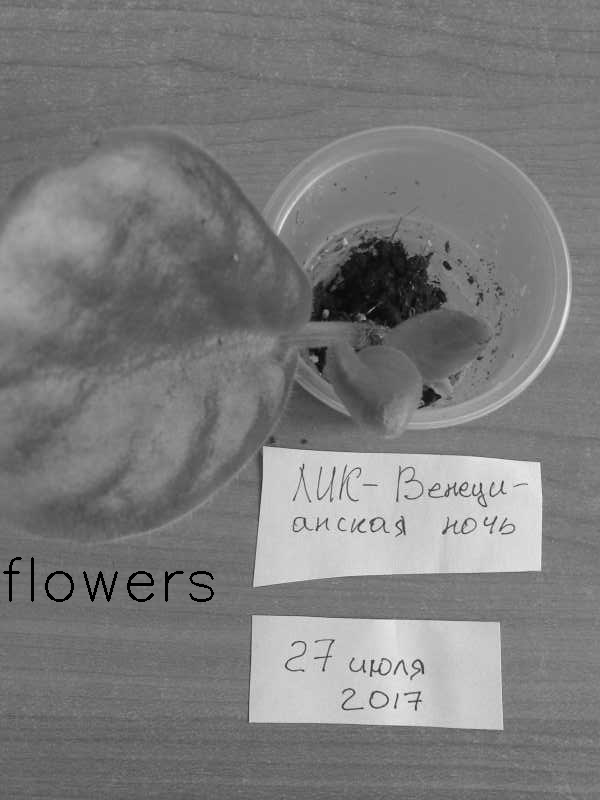 ЛИК- Венеци-
анская ночь
flowers
27 июля
2017